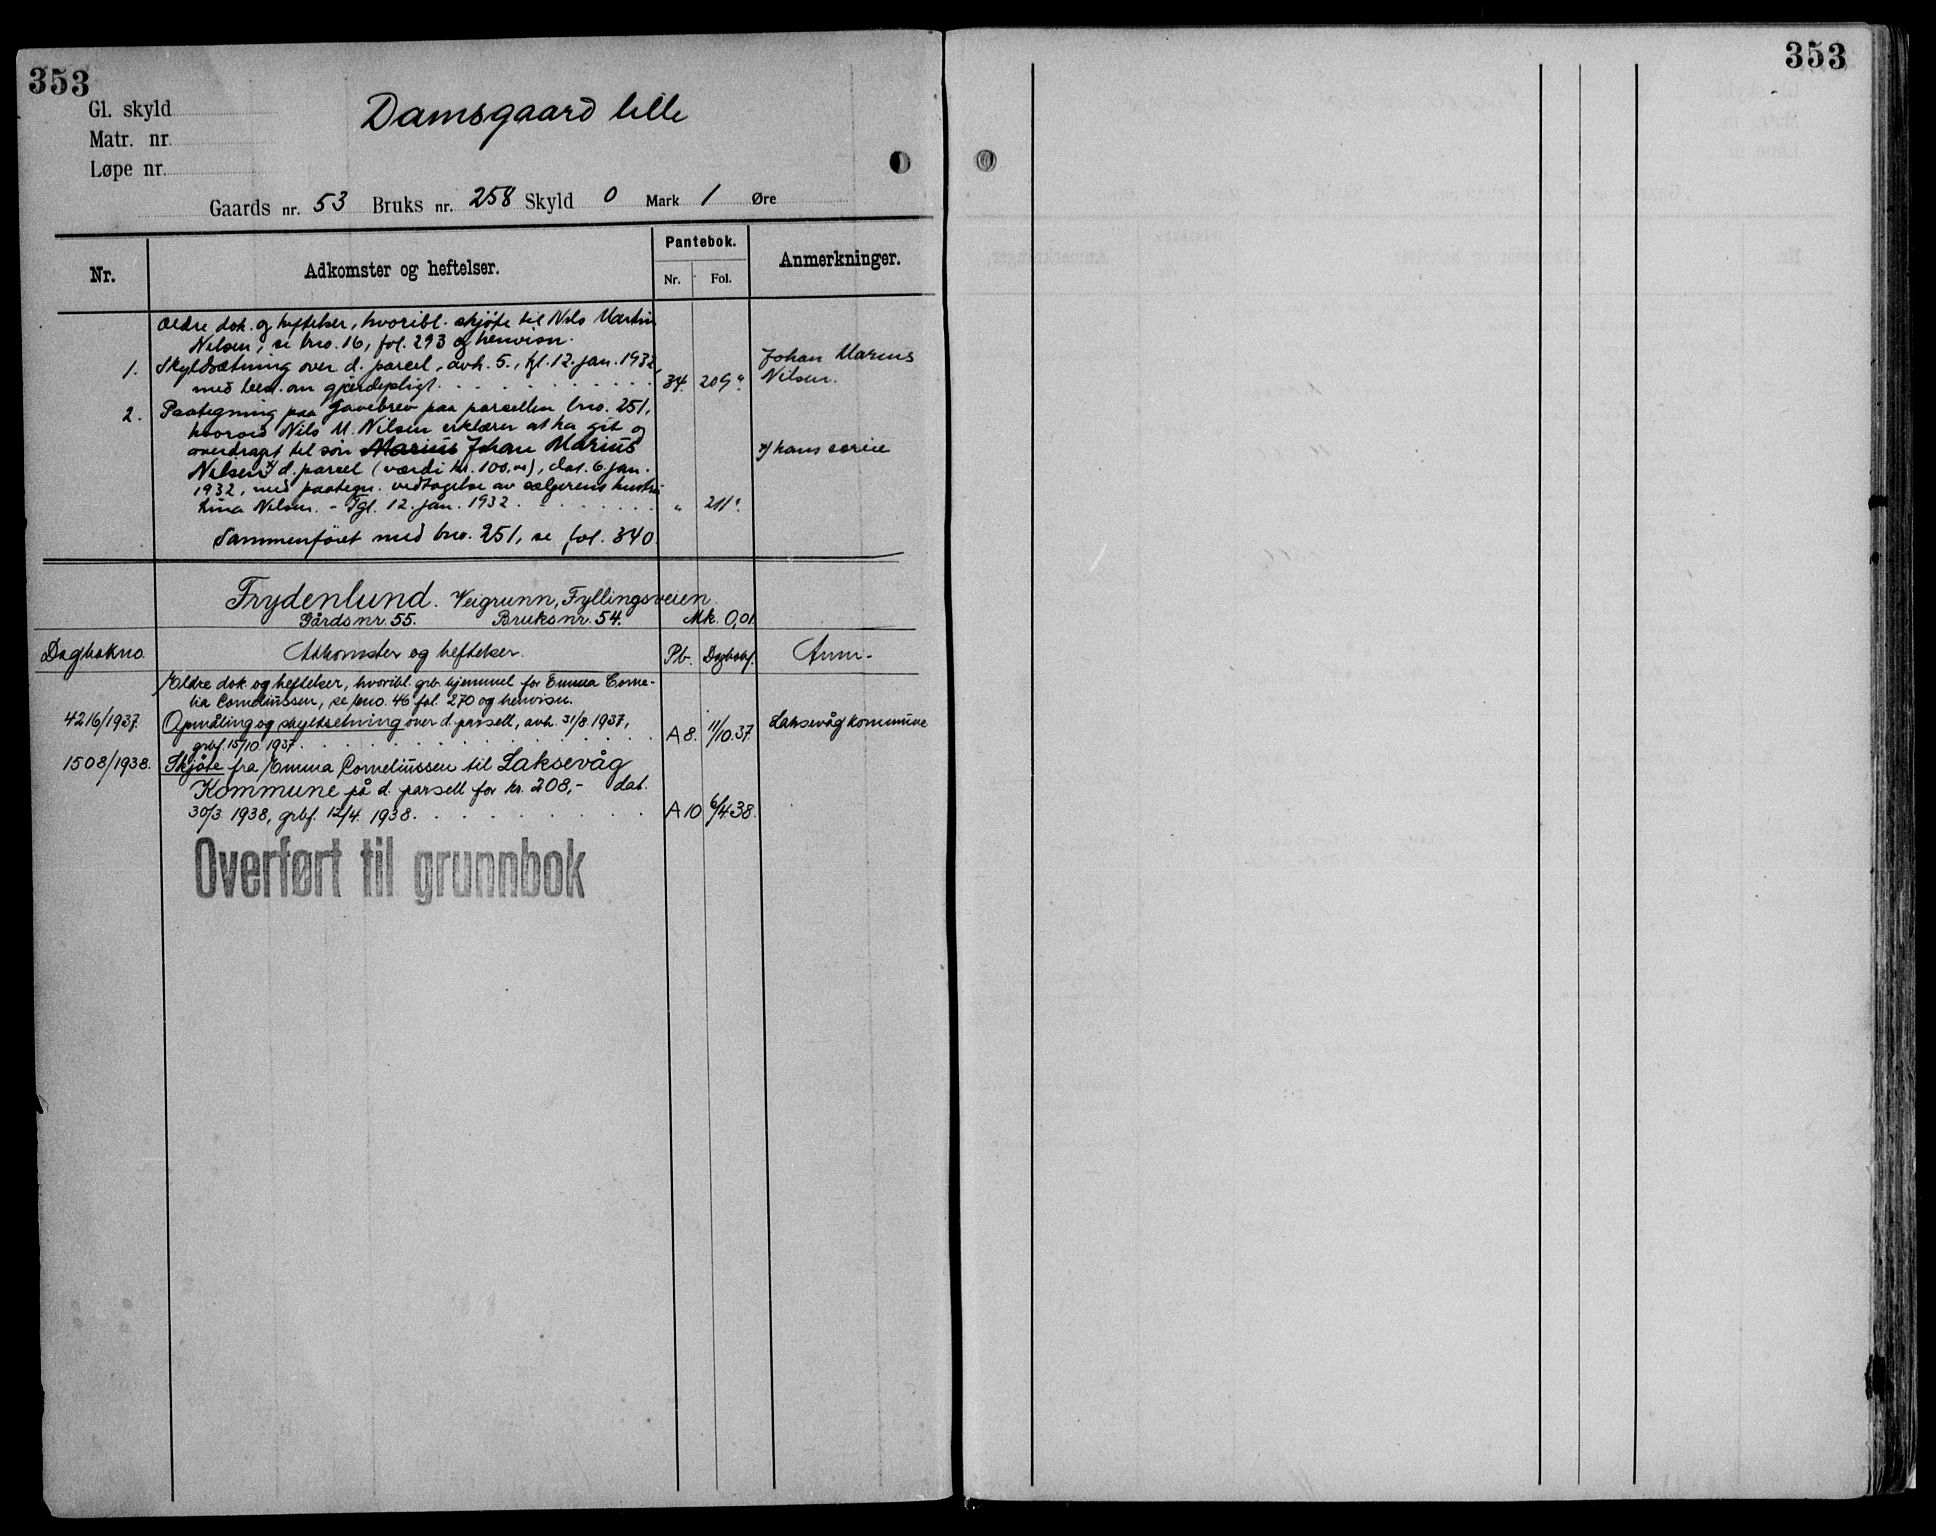 353
353
Gl. skyld
Damsgaard lille
Matr. nr.
Løpe nr.
Gaards nr. 53 Bruks nr. 258 Skyld 0 Mark 1 Øre
Nr. Adkomster og heftelser. Pantebok. Anmerkninger.
Nr. Fol.
Ældre dok. og heftelser, hvoribl. skjøte til Nils Martin
Nilsen, se bno. 16, fol. 293 og henvisn.
1. Skyldsætning over d. parcel, avh. 5., tgl. 12. jan. 1932, Johan Marius
med best. om gjerdepligt. 34. 209ᵃ Nilsen.
2. Paategning paa Gavebrev paa parsellen bno. 251,
hvorved Nils M. Nilsen erklærer at ha git og
overdraget til søn Marius Johan Marius x) hans særeie
Nilsen x) d. parcel (værdi kr. 100,oo), dat. 6. jan.
1932, med paategn. vedtagelse av sælgerens hustru
Lina Nilsen. - Tgl. 12. jan. 1932. " 211ᵃ.
Sammenføiet med bno. 251, se fol. 340
Frydenlund. Veigrunn, Fyllingsveien.
Gårdsnr. 55. Bruksnr. 54. Mk. 0,01
Dagbokno. Adkomster og heftelser. Pb. Dagbokf. Anm-
Ældre dok. og heftelser, hvoribl. grb. hjemmel for Emma Corne-
lia Corneliussen, se bno. 46 fol. 270 og henvisn.
4216/1937. Opmåling og skyldsetning over d. parsell, avh. 31/8 1937, Laksevåg kommune
grbf. 15/10 1937. A 8. 11/10.37.
1508/1938. Skjøte fra Emma Corneliussen til Laksevåg
Kommune på d. parsell for kr. 208,- dat.
30/3 1938, grbf. 12/4. 1938. A 10 6/4.38.
Overført til grunnbok